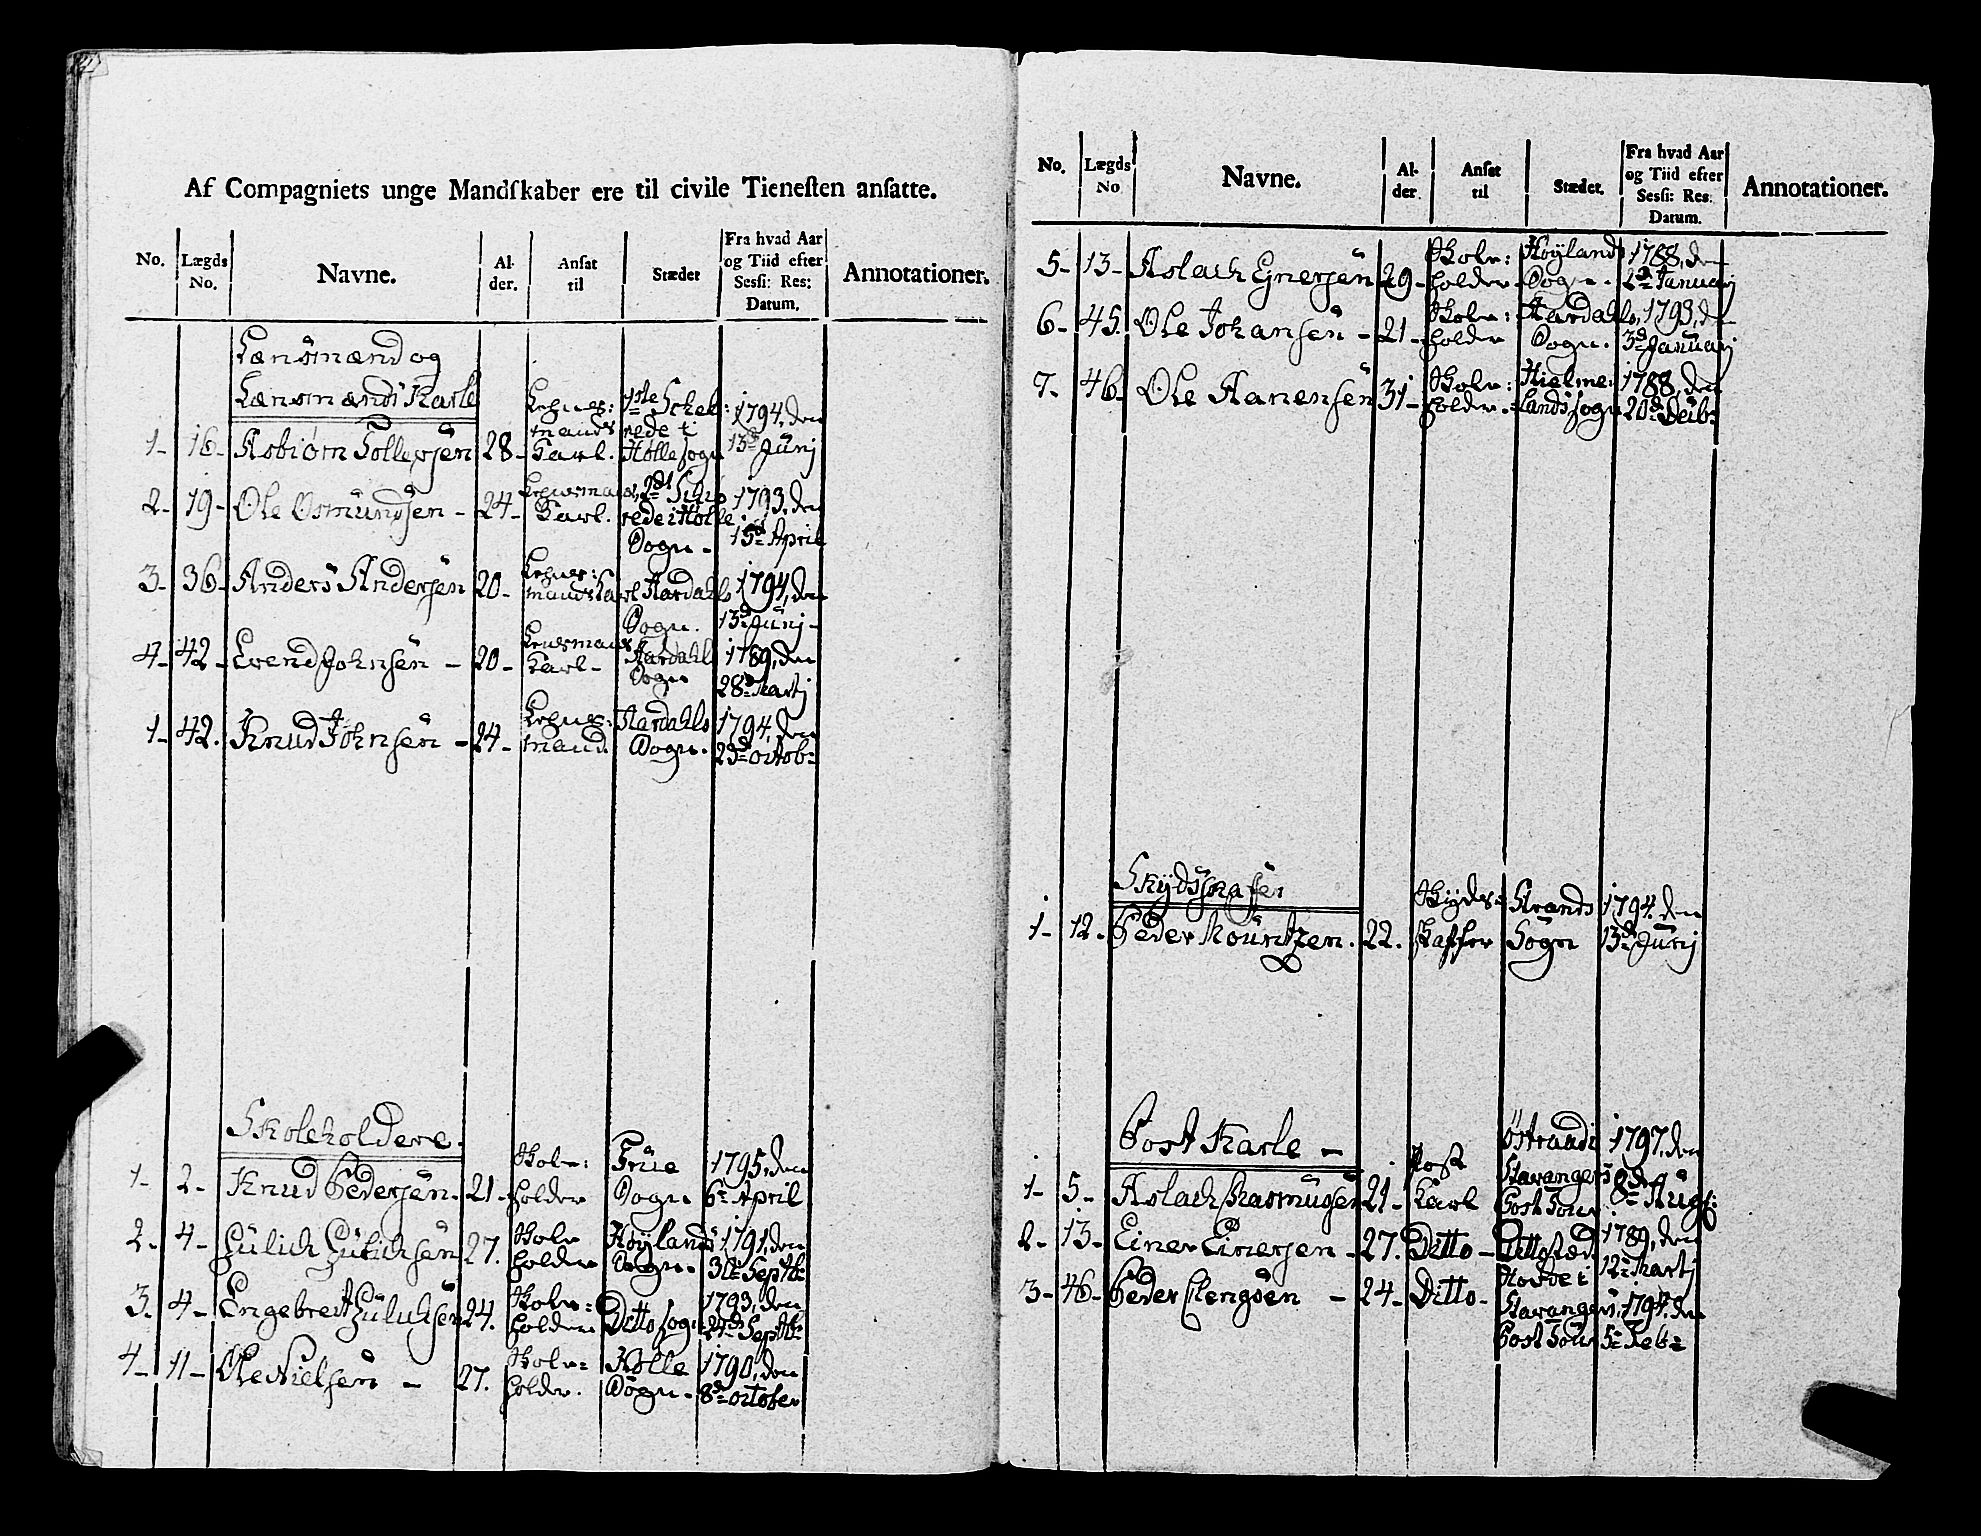 Af Compagniets unge Mandſkaber ere til civile Tieneſten anſatte.
No. Lægds No. Navne. Al- der. Anſat til Stædet Fra hvad Aar og Tiid efter Seſſi: Res: Datum. Annotationer.
Lænsmænd og
Lænsmænds Karle
1- 16- Asbiørn Tollevsen 28- Lehns: mands Karl. 1ste Schib: rede i Holle sogn 1794, den 13de Junj
2- 19- Ole Osmundsen - 24- Lehnsmands Karl. 2det Schib rede i Holle Sogn - 1793, den 15de April
3- 36- Anders Andersen 20- Lehns: mands Karl Aardahls Sogn. 1794, den 13de Junj -
4- 42- Evend Johnsen - 20- Lensmands Karl - Aardahls Sogn 1789, den 28de Martj
1- 42. Knud Johnsen - 24- Lehns: mand. Aardahls Sogn. 1794, den 23de octob:
Skoleholdere.
1- 2- Knud Pedersen. 21- Skole: holder Sogn 1795, den 6te April
2- 4- 27. Skole holder Høylands Sogn. 1791, den 30te Septbr:
3. 4- Engebreth 24. Skole: holder Ditto sogn 1793, den 24de Septbr:
4- 11- Ole Nielsen - 27. Skole= holder. Holle Sogn - 1790, den 8de october
No. Lægds No Navne. Al- der. Anſat til Stædet. Fra hvad Aar og Tiid efter Seſſi: Res: Datum. Annotationer.
5- 13- Aslach Ejnersen 29- Skole: holder Høylands Sogn. 1788, den 2den Januarj
6- 45. Ole Johansen - 21- Skole: holder Aardahls Sogn. 1793, den 3de Januarj
7- 46- Ole Aanensen 31- Skole: holder. Hielme: lands sogn 1788, den 20de
Skydsskaffer
1- 12- Peder Mountzen. 22. Skyds= skaffer Strands Sogn 1794, den 13de Junj
Post Karle -
1- 5- Aslach Rasmussen 21- Post Karl Stavangers Post Tour 1797, den 8de Aug:
2- 13- Einer Einersen - 27. Ditto - Ditto stæd 1789, den 12te Martj
3- 46- Peder - 24- Ditto - i Stavangers Post Tour 1794, den 5te Feb: